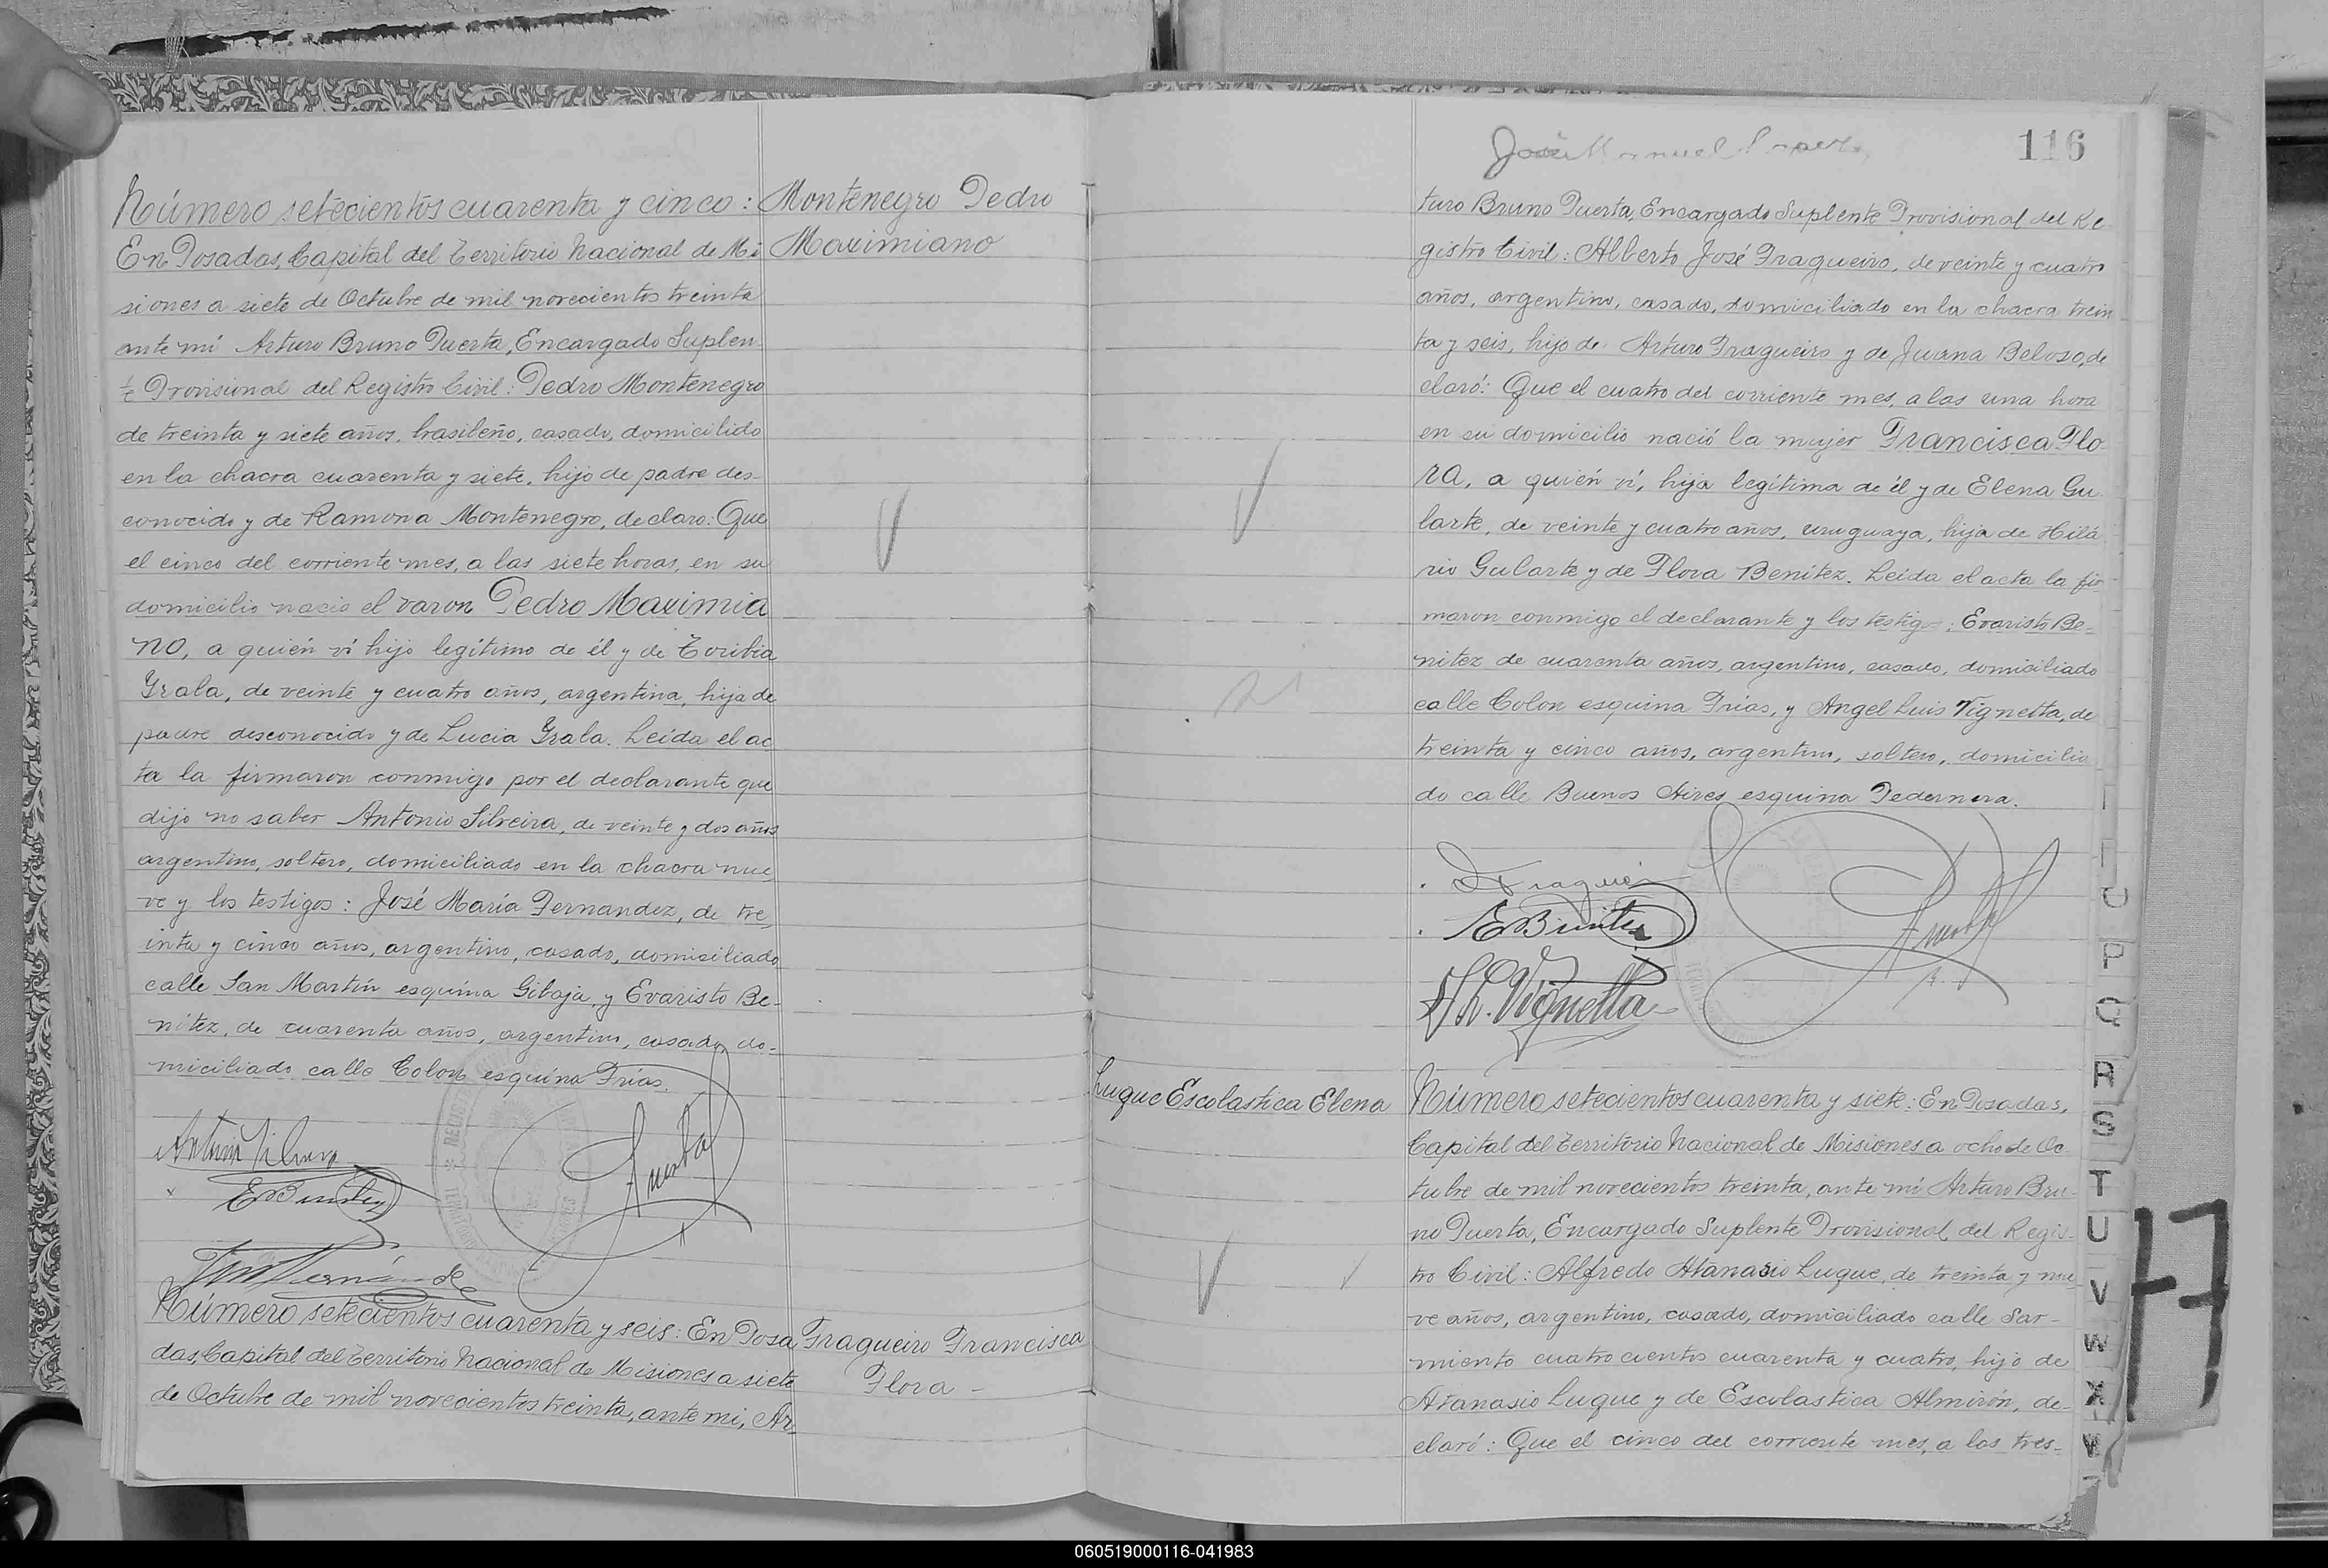 Número setecientos cuarenta y cinco: Montenegro Pedro
Maximiano
En Posadas, Capital del Territorio Nacional de Mi
siones a siete de Octubre de mil novecientos treinta
ante mí Arturo Bruno Puerta, Encargado Suplen
te Provisional del Registro Civil: Pedro Montenegro
de treinta y siete años, brasileño, casado, domicilido
en la chacra cuarenta y siete, hijo de padre des-
conocido y de Ramona Montenegro, declaro: Que
el cinco del corriente mes, a las siete horas, en su
domicilio nacio el varon Pedro Maximia
no, a quién ví hijo legítimo de él y de Toribia
Grala, de veinte y cuatro años, argentina, hija de
padre desconocido y de Lucia Grala. Leida el ac
ta la firmaron conmigo por el declarante que
dijo no saber Antonio Silveira, de veinte y dos años
argentino, soltero, domiciliado en la chacra nue
ve y los testigos: José María Fernandez, de tre
inta y cinco años, argentino, casado, domiciliado
calle San Martín esquina Gibaja, y Evaristo Be-
nitez, de cuarenta años, argentino, casado, do-
miciliado calle Colon esquina Frias.
Antonio Silveira
EBenitez
Puerta
Número setecientos cuarenta y seis: En Posa
Fragueiro Francisca
Flora -
das, Capital del Territorio Nacional de Misiones a siete
de Octubre de mil novecientos treinta, ante mi, Ar
José Manuel
116
turo Bruno Puerta, Encargado Suplente Provisional del Re
gistro Civil: Alberto José Fragueiro, de veinte y cuatro
años, argentino, casado, domiciliado en la chacra trein
ta y seis, hijo de Arturo Fragueiro y de Juana Beloso, de
claró: Que el cuatro del corriente mes, a las una hora
en su domicilio nació la mujer Francisca Flo
ra, a quién ví, hija legítima de él y de Elena Gu
larte, de veinte y cuatro años, uruguaya, hija de Hilá
rio Gularte y de Flora Benítez. Leída el acta la fir
maron conmigo el declarante y los testigos: Evaristo Be-
nitez de cuarenta años, argentino, casado, domiciliado
calle Colon esquina Frías, y Angel Luis Vignetta, de
treinta y cinco años, argentino, soltero, domicilia
do calle Buenos Aires esquina Pedernera.
EBenitez
A L. Vignetta
Puerta
Luque Escolastica Elena
Número setecientos cuarenta y siete: En Posadas,
Capital del Territorio Nacional de Misiones a ocho de Oc
tubre de mil novecientos treinta, ante mí Arturo Bru-
no Puerta, Encargado Suplente Provisional del Regis-
tro Civil: Alfredo Atanasio Luque, de treinta y nue
ve años, argentino, casado, domiciliado calle Sar-
miento cuatrocientos cuarenta y cuatro, hijo de
Atanasio Luque y de Escolastica Almirón, de-
claró: Que el cinco del corriente mes, a las tres-
P
Q
R
S
T
U
V
W
X
060519000116-041983